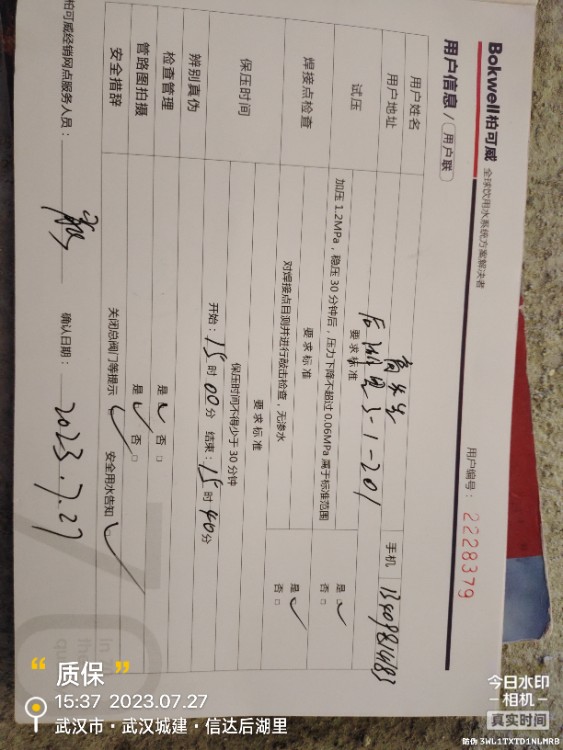 Bokwell柏可威 全球饮用水系统方案解决者
用户编号：2228379
用户信息 / 用户联
用户姓名
用户地址 后湖里3-1-201 手机
试压 要求标准
加压 1.2MPa，稳压 30 分钟后，压力下降不超过 0.06MPa 属于标准范围 是 否
焊接点检查 要求标准
对焊接点目测并进行敲击检查，无渗水 是 否
保压时间 要求标准
保压时间不得少于 30 分钟
开始：15 时 00 分 结束：15 时 40 分
辨别真伪
检查管理 是 否
管路图拍摄 是 否
安全措辞 关闭总阀门等提示 安全用水告知
柏可威经销网点服务人员： 确认日期：2023.7.27
质保
15:37 2023.07.27
武汉市·武汉城建·信达后湖里
今日水印
相机
真实时间
防伪 3WL1TXTD1NLMRB